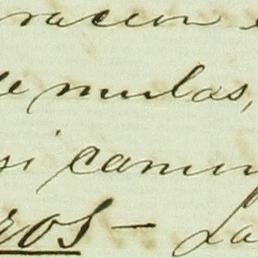 racion
de mulas,
si camin
ros — La